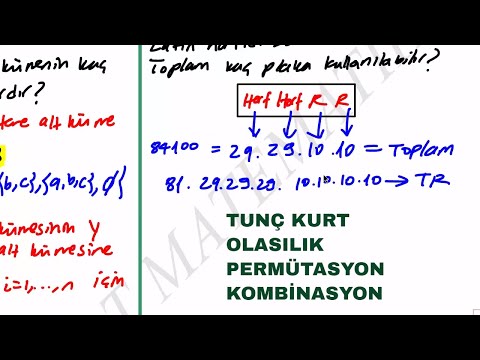 kümenin kaç
rdır?
kere alt küme
{b,c},{a,b,c},∅}
kümesinin y
alt kümesine
i=1,...,n için
Toplam kaç plaka kullanılabilir?
Harf Harf R R
84100 = 29.29.10.10 = Toplam
81.29.29.29. 10.10.10.10 → TR
TUNÇ KURT
OLASILIK
PERMÜTASYON
KOMBİNASYON